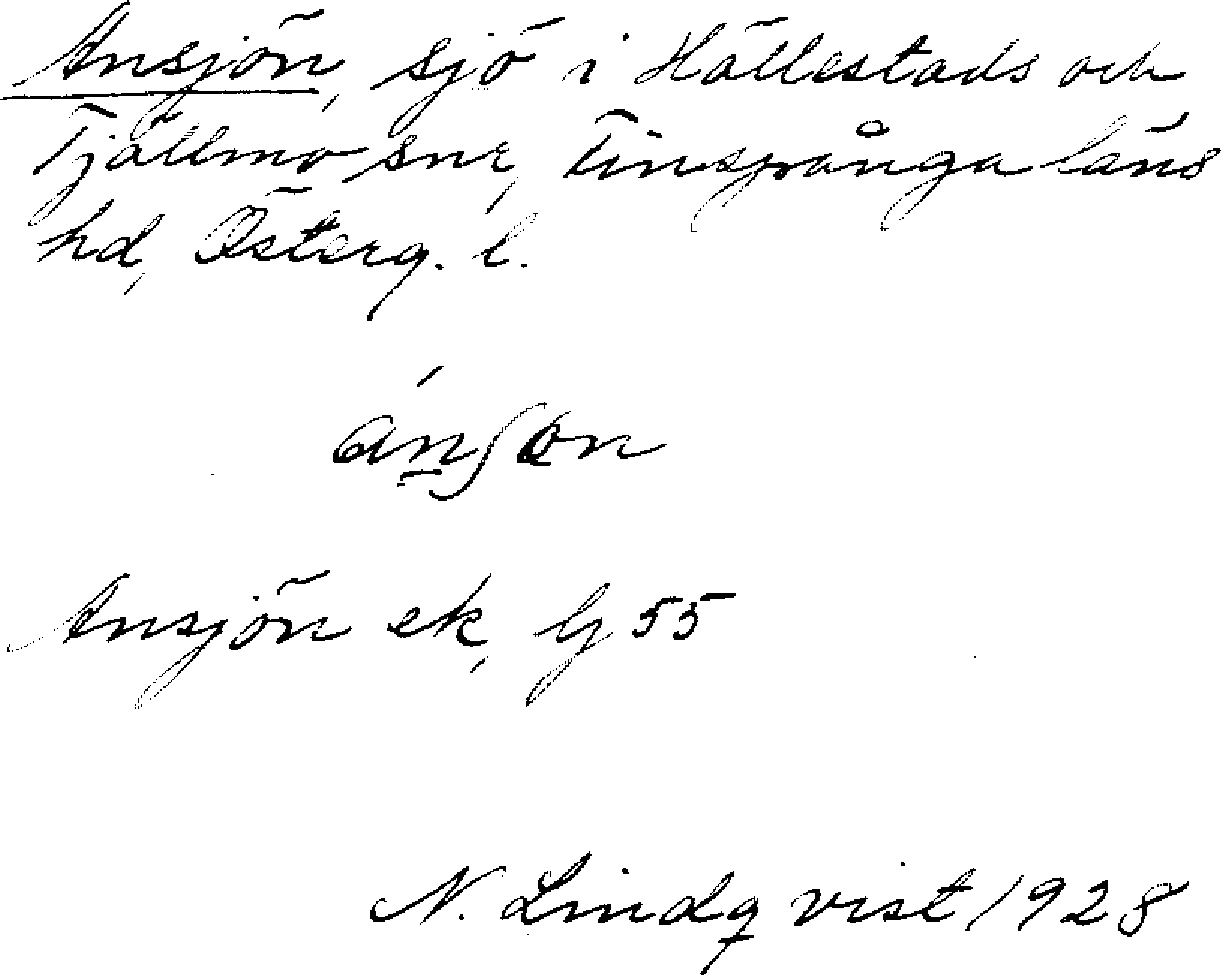 Ansjön, sjö i Hällestads och
Tjällmo snr, Finspånga läns
hd, Österg. l.
Ansjön ek, G 55
N. Lindqvist 1928